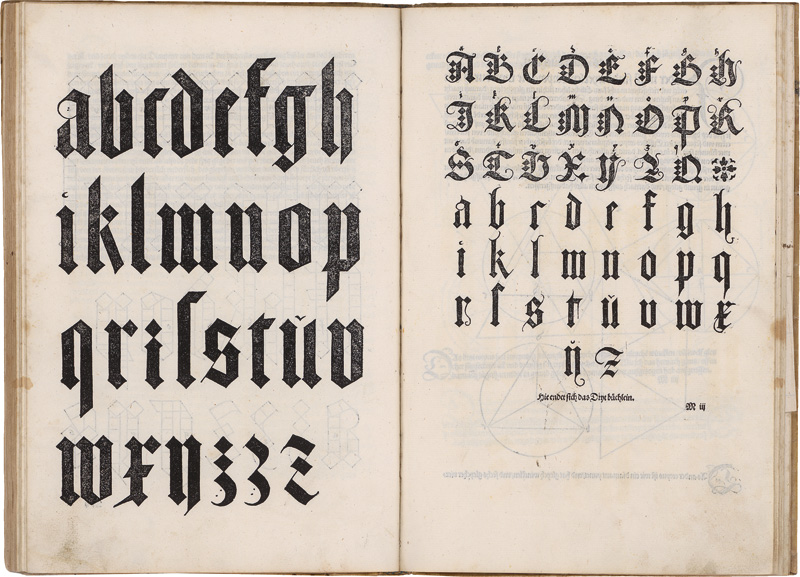 abcdefgh
iklmnop
qriſstŭv
wxyʒʒz
A B C D E F G H
I K L M N O P R
S T V X Y Z Q
a b c d e f g h
i k l m n o p q
r ſ s t ŭ v w x
ÿ z
Hie endet sich das Drit büchlein.
M iij